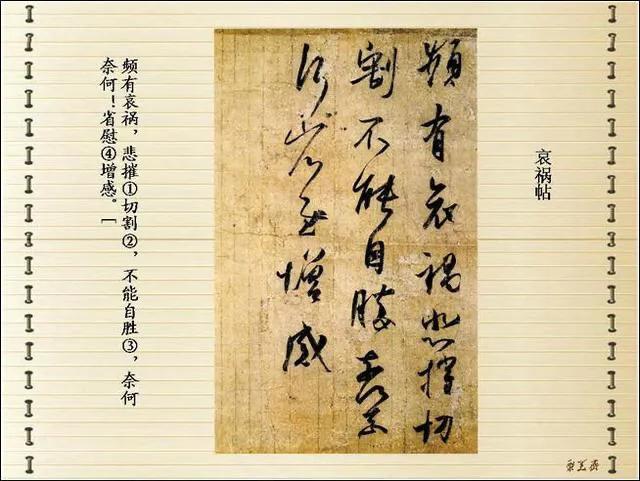 哀祸帖
頻有哀禍悲摧切
割不能自勝奈何
奈何省慰增感
频有哀祸，悲摧①切割②，不能自胜③，奈何
奈何！省慰④增感。「